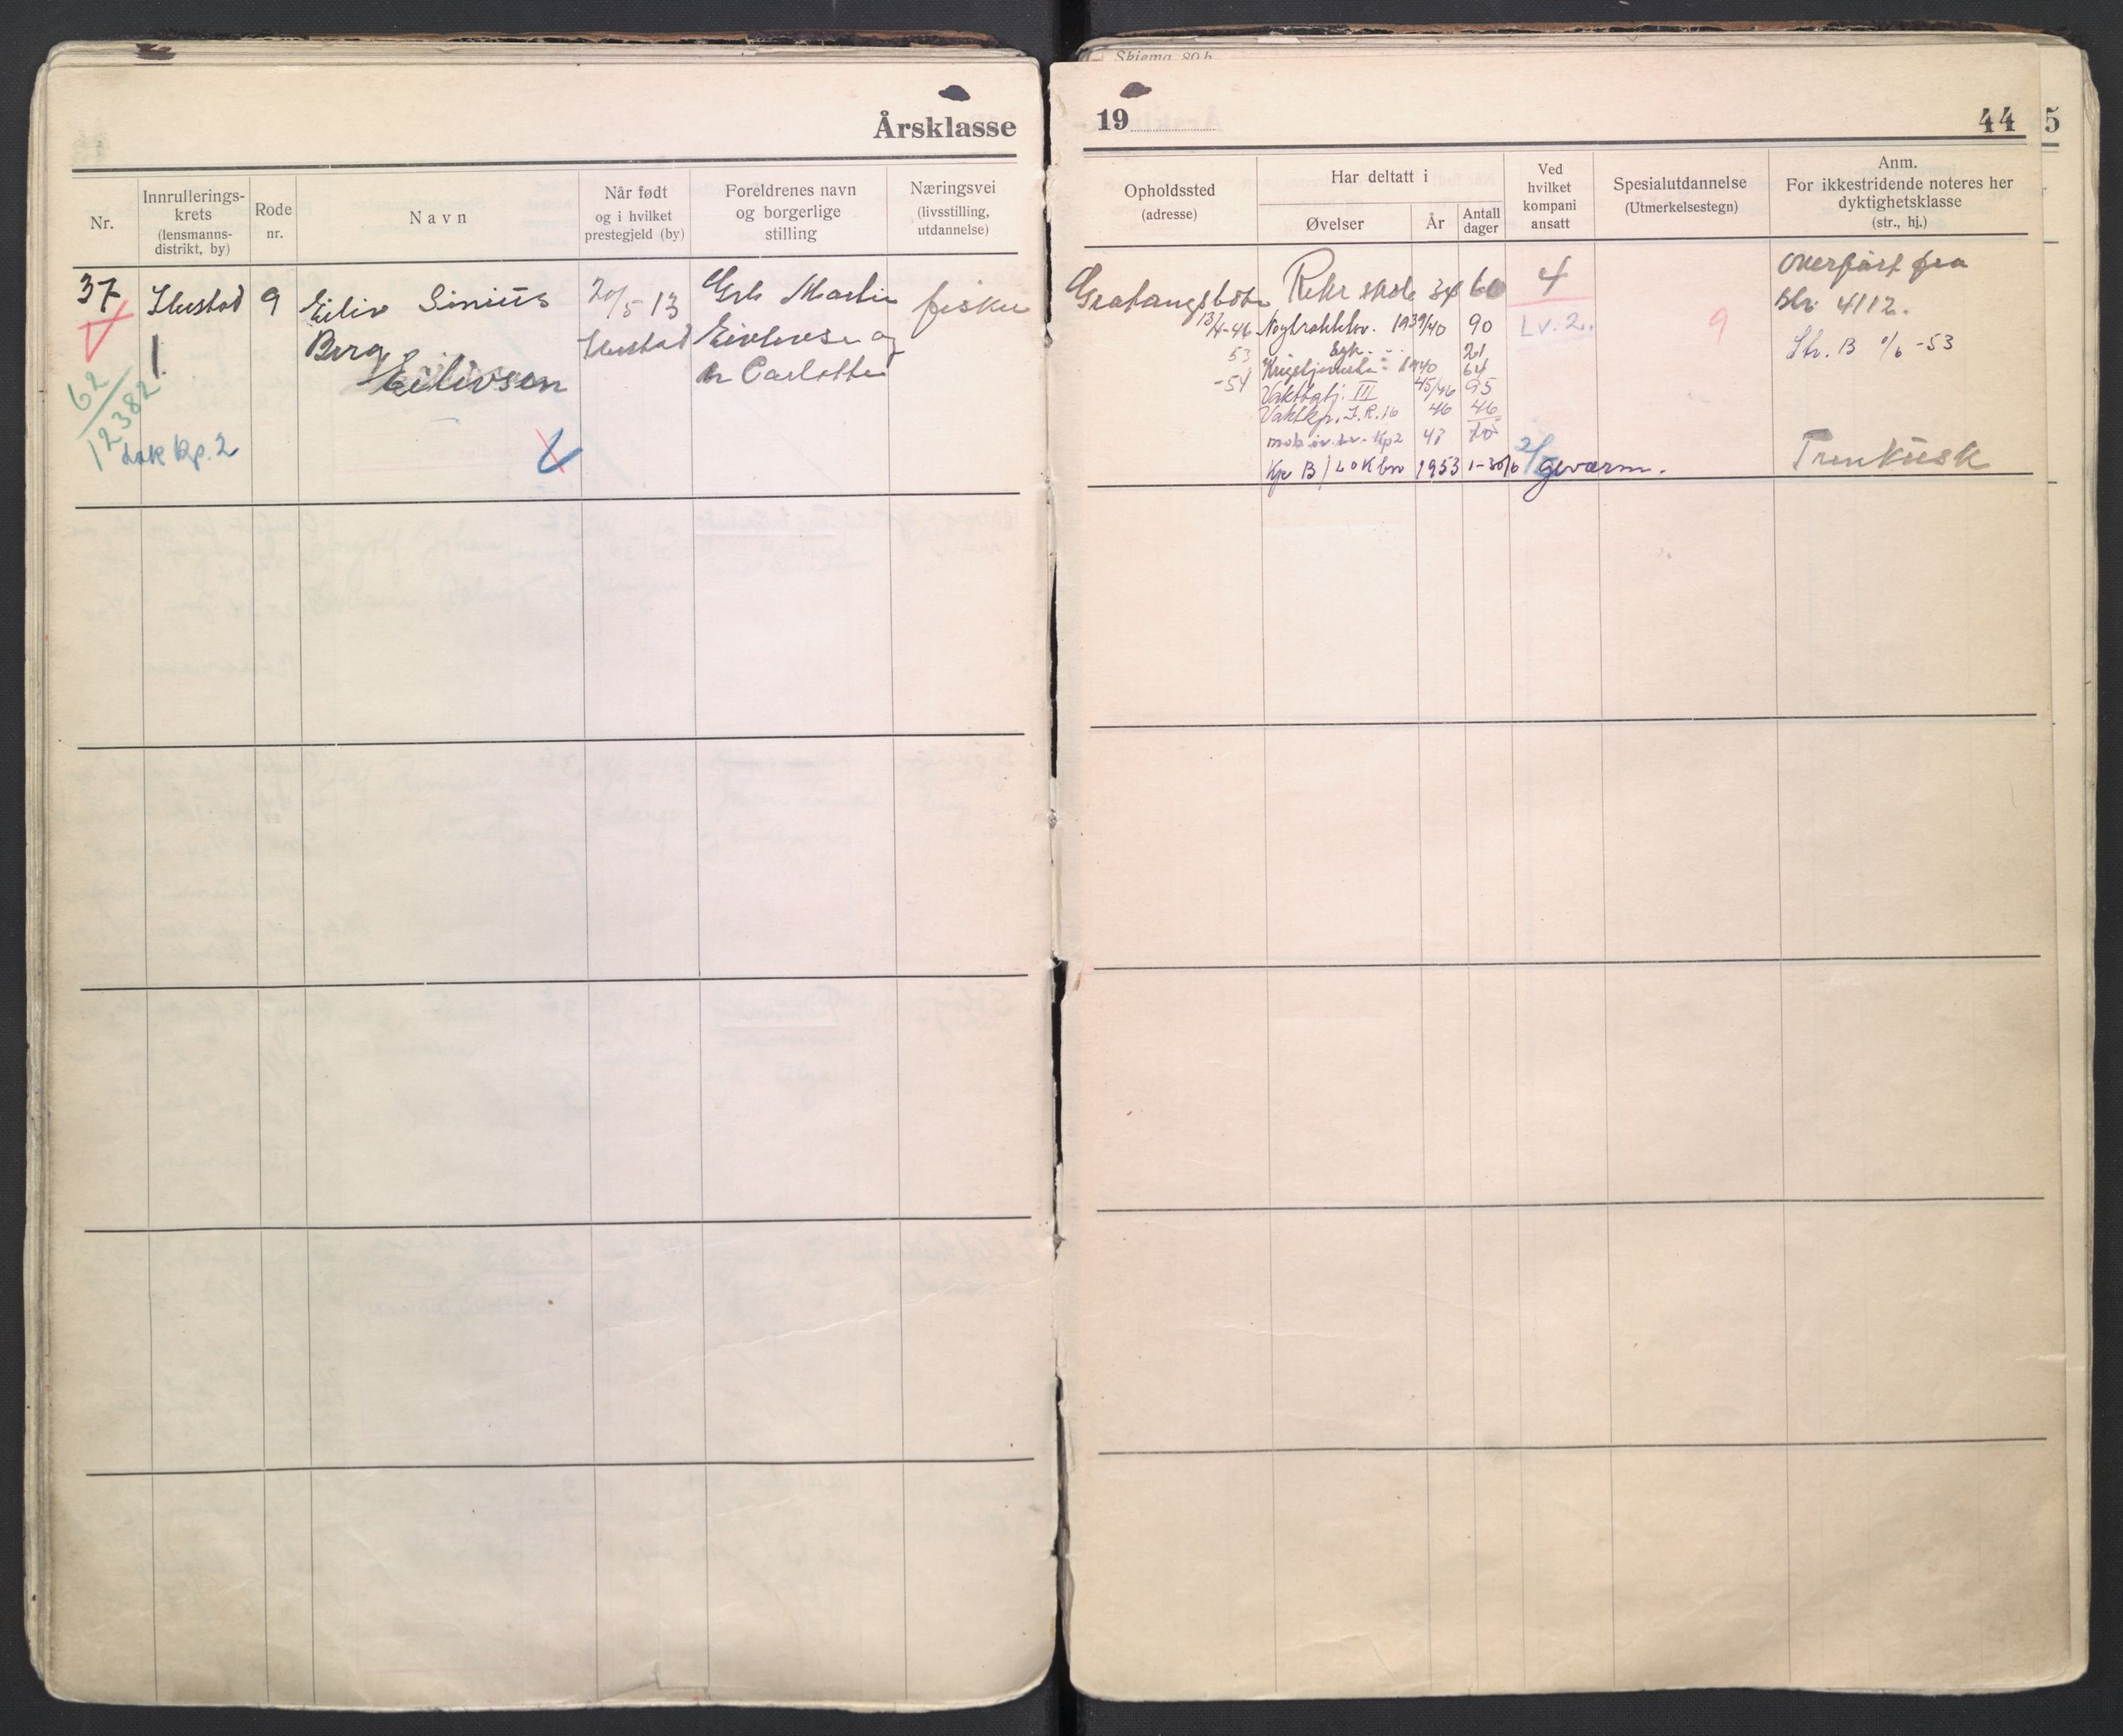 Skjema 80 b.
Årsklasse
19
44
5
Nr.
Innrullerings-
krets
(lensmanns-
distrikt, by)
Rode
nr.
Navn
Når født
og i hvilket
prestegjeld (by)
Foreldrenes navn
og borgerlige
stilling
Næringsvei
(livsstilling,
utdannelse)
Opholdssted
(adresse)
Har deltatt i
Øvelser
År
Antall
dager
Ved
hvilket
kompani
ansatt
Spesialutdannelse
(Utmerkelsestegn)
Anm.
For ikkestridende noteres her
dyktighetsklasse
(str., hj.)
37
Ibestad
9
Eiliv
Berg
Eilivsen
20/5 13
Ibestad
Martin
og
Carlotte
fisker
62
12382
Lok kp. 2
Gratangsbotn
13/4-46
53
-54
Rekr skole 34 60
Nøytralitetsv. 1939/40 90
21
1940 64
Vakttgtj. III 45/46 95
Vaktkp. I.R. 16 46 46
Kp2 47
Kp B / Lokbn 1953 1-30/6 geværm.
4
Lv. 2.
9
Overført fra
Str. B 1/6 -53
Trenkusk